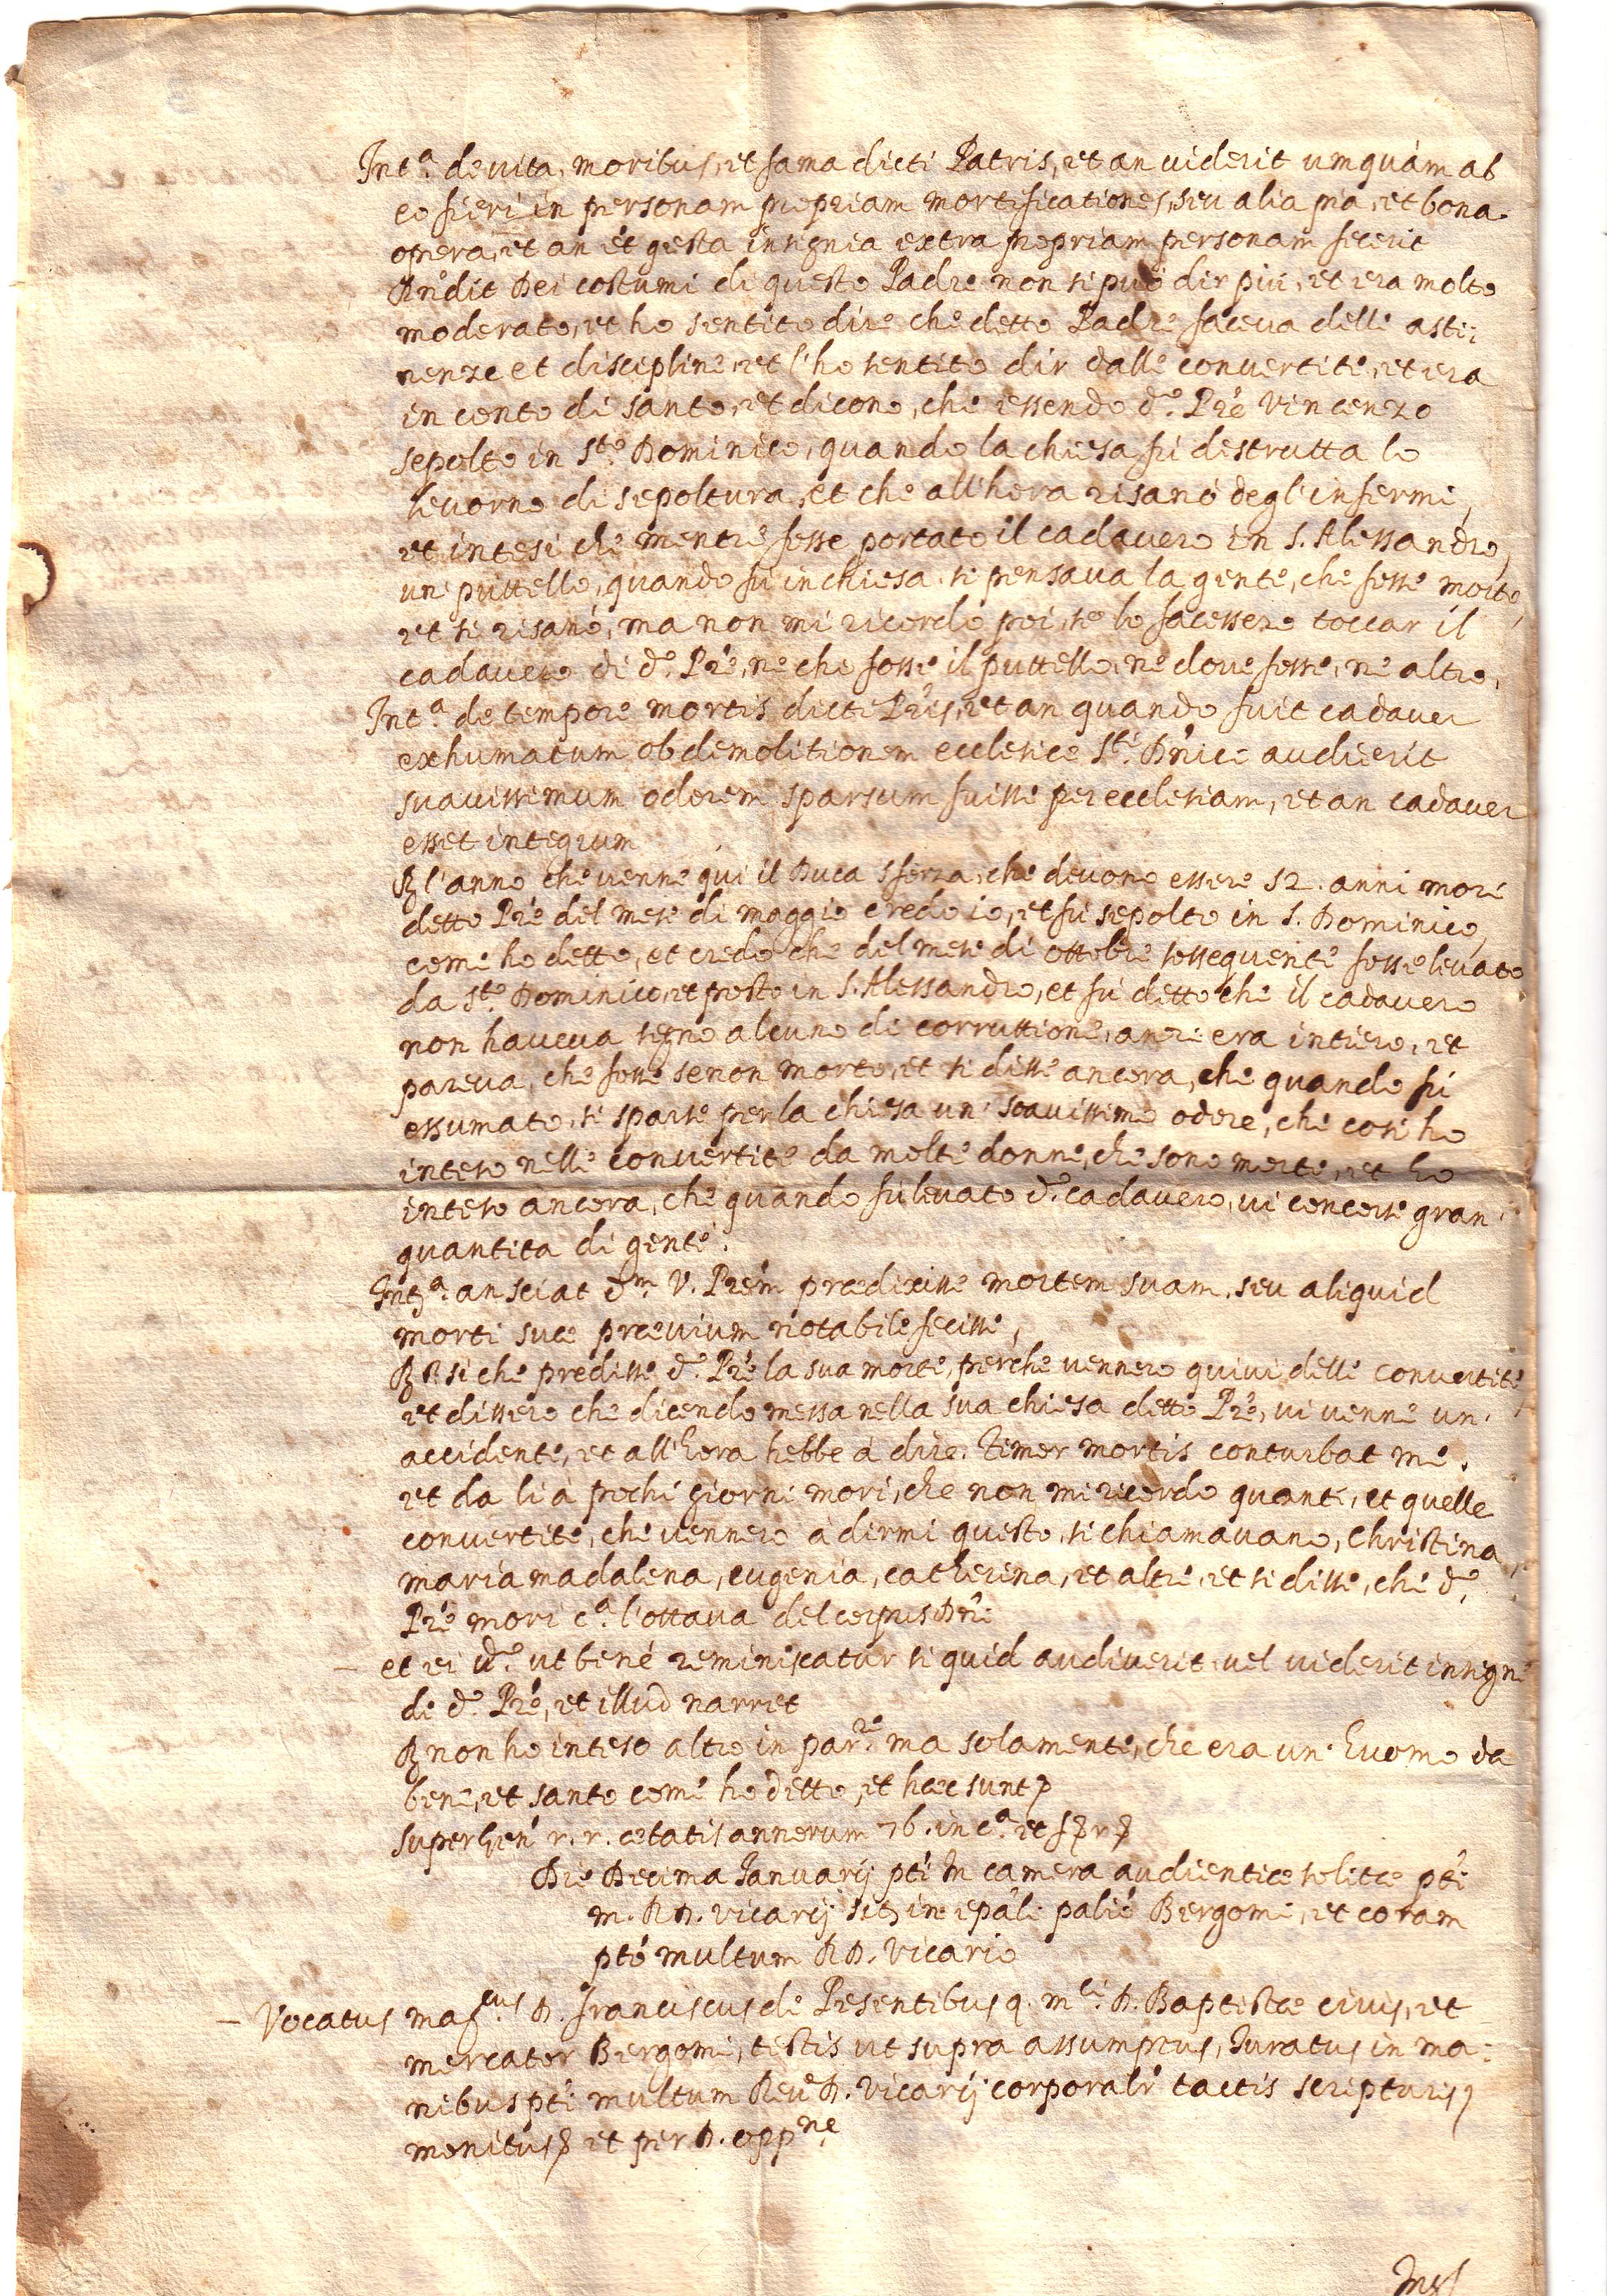 Int.ᵃ de vita, moribus, et fama dicti Patris, et an viderit umquàm ab
eo fieri in personam propriam mortificationes, seu alia pia, et bona
opera, et an èt gesta insignia extra propriam personam fecerit
Rñdit Dei costumi di questo Padre non si può dir più, et era molto
moderato, et ho sentito dire che detto Padre faceva delle asti:
nenze et discipline, et l'ho sentito dir dalle convertite, et era
in conto di santo, et dicono, che essendo d.º Prê Vincenzo
sepolto in S.ᵗᵒ Dominico, quando la chiesa fù destrutta lo
levorno di sepoltura, et che all'hora risanò degl'infermi,
et intesi che mentre fosse portato il cadavero in S. Alessandro,
un puttello, quando fù in chiesa, si pensava la gente, che fosse morto,
et si risanò, ma non mi ricordo poi, se lo facessero toccar il
cadavero di d.º Prê, ne chi fosse il puttello, ne dove fosse, ne altro,
Int.ᵃ de tempore mortis dicti Pris, et an quando fuit cadaver
exhumatum ob demolitionem ecclesiæ S.ᵗⁱ Dñici audierit
suavissimum odorem sparsum fuisse per ecclesiam, et an cadaver
esset integrum
R l'anno che venne quì il Duca Sforza, che devono essere 52. anni morì
detto Prê del mese di maggio credo io, et fù sepolto in S. Dominico,
come ho detto, et credo che del mese di ottobre sossequente fosse levato
da S.ᵗᵒ Dominico, et posto in S. Alessandro, et fù detto che il cadavero
non haveva segno alcuno di corruttione, anzi era intiero, et
pareva, che fosse se non morto, et si disse ancora, che quando fù
essumato, si sparse per la chiesa un' soavissimo odore, che così ho
inteso nelle convertite da molte donne, che sono morte, et ho
inteso ancora, che quando fù levato d.º cadavero, vi concorse gran'
quantita di gente.
Int.ᵃ an sciat d.ᵐ V. Prêm prædixisse mortem suam, seu aliquid
morti suæ prævium notabile fecisse,
R R. si che predisse d.º Prê la sua morte, perche vennero quivi delle convertite,
et dissero che dicendo messa nella sua chiesa detto Prê, vi venne un'
accidente, et all'hora hebbe à dire. Timor mortis conturbat me.
et da li à pochi giorni morì, che non mi ricordo quanti, et quelle
convertite, che vennero à dirmi questo, si chiamavano, Christina,
maria madalena, eugenia, catherina, et altre, et si disse, che d.º
Prê morì c.ᵃ l'ottava del corpus Dñi
– et ei d.º ut bené reminiscatur si quid audiverit, vel viderit insigne
di d.º Prê, et illud narret
R non ho inteso altro in par.ʳᵉ ma solamente, che era un' huomo da
bene, et santo come ho detto, et hæc sunt p
super gen' r. r. ætatis annorum 76. in c.ᵃ et
Die Decima Januarij pti In camera audientiæ solitæ pti
m. R D. vicarij sit in epâli palio Bergomi, et coram
pto multum R D. Vicario
– Vocatus mag.ᶜᵘˢ D. Franciscus de Pesentibus q. m.ᶜⁱ D. Baptistæ civis, et
mercator Bergomi, testis ut supra assumptus, Juratus in ma:
nibus pti multum Rev.ᵈⁱ D. Vicarij corporalr tactis scripturis,
monitus et per D. opp.ⁿᵉ
Int